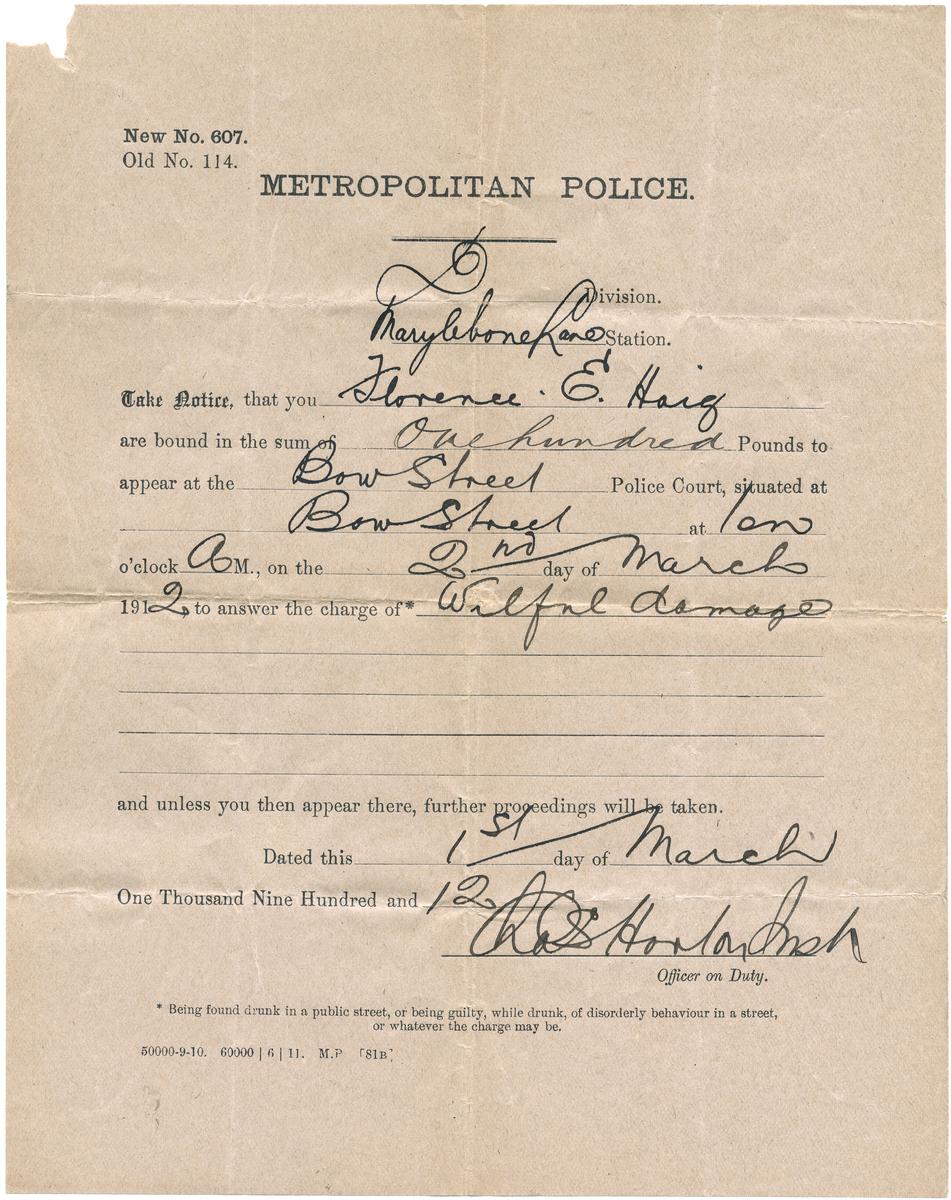 New No. 607.
Old No. 114.
METROPOLITAN POLICE.
D Division.
Marylebone Lane Station.
Take Notice, that you Florence. E. Haig
are bound in the sum of One hundred Pounds to
appear at the Bow Street Police Court, situated at
Bow Street at Ten
o'clock A M., on the 2nd day of March
1912, to answer the charge of* Wilful damage
and unless you then appear there, further proceedings will be taken.
Dated this 1st day of March
One Thousand Nine Hundred and 12
Horton Insp
Officer on Duty.
* Being found drunk in a public street, or being guilty, while drunk, of disorderly behaviour in a street,
or whatever the charge may be.
50000-9-10. 60000 | 6 | 11. M.P [81B]